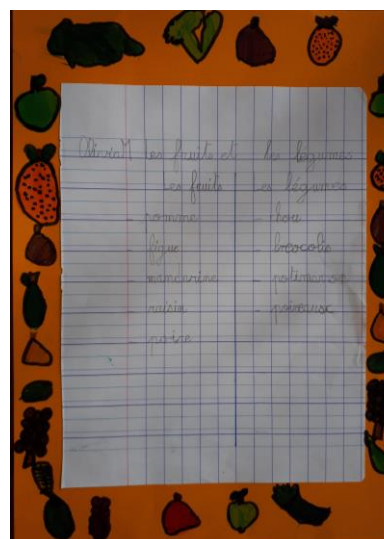 les fruits et les légumes
Les fruits Les légumes
- pomme - chou
- figue - brocolis
- mancarine - potimaron
- raisin - poireaux
- poire